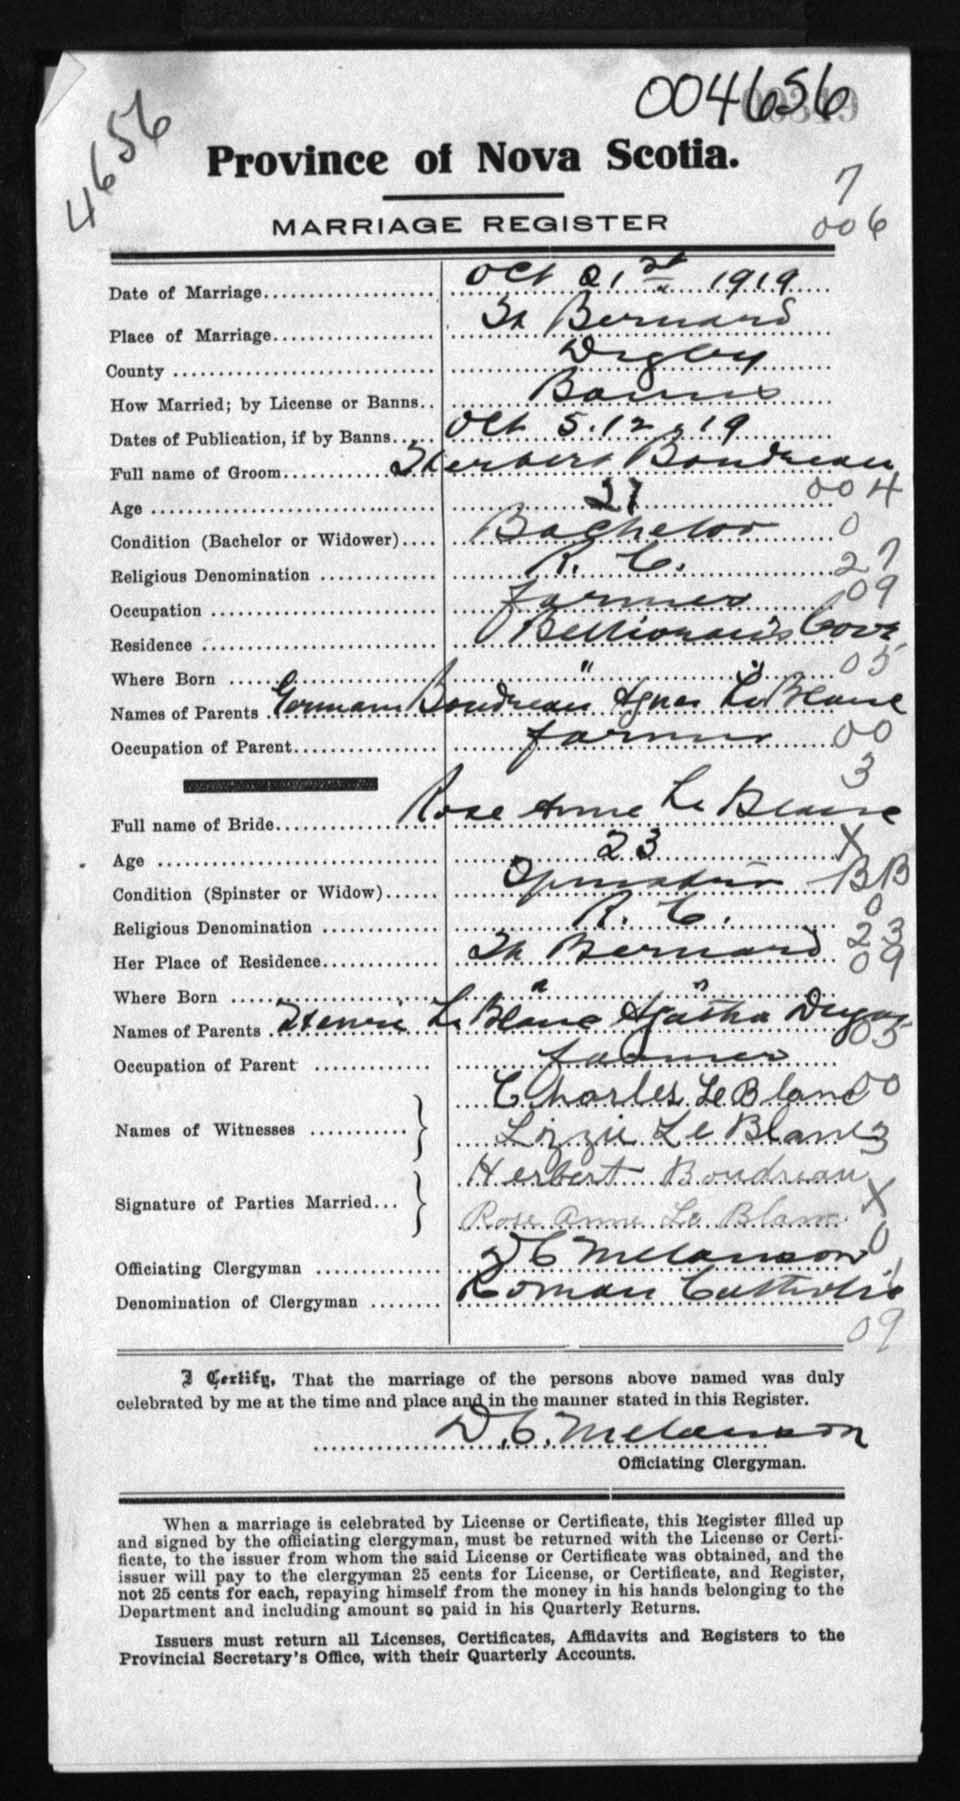 004656
4656
Province of Nova Scotia.
7
MARRIAGE REGISTER
006
Date of Marriage Oct 21st 1919
Place of Marriage St Bernard
County Digby
How Married; by License or Banns.. Banns
Dates of Publication, if by Banns Oct 5.12.19
Full name of Groom Herbert Boudreau
004
Age 27
Condition (Bachelor or Widower) Bachelor 0
Religious Denomination R. C. 27
Occupation farmer 09
Residence Belliveau's Cove
Where Born " " 05
Names of Parents Germain Boudreau Agnes Le Blanc
Occupation of Parent farmer 00
3
Full name of Bride Rose Anne Le Blanc
Age 23 X
Condition (Spinster or Widow) Spinster BB
0
Religious Denomination R. C. 23
Her Place of Residence St Bernard 09
Where Born " "
Names of Parents Henri Le Blanc Agatha Dugas
05
Occupation of Parent farmer
Charles LeBlanc 00
Names of Witnesses
Lizzie Le Blanc 3
Herbert Boudreau
Signature of Parties Married... X
Rose Anne Le Blanc
0
Officiating Clergyman D C Melanson
Denomination of Clergyman Roman Catholic
09
I Certify, That the marriage of the persons above named was duly
celebrated by me at the time and place and in the manner stated in this Register.
D. C. Melanson
Officiating Clergyman.
When a marriage is celebrated by License or Certificate, this Register filled up
and signed by the officiating clergyman, must be returned with the License or Certi-
ficate, to the issuer from whom the said License or Certificate was obtained, and the
issuer will pay to the clergyman 25 cents for License, or Certificate, and Register,
not 25 cents for each, repaying himself from the money in his hands belonging to the
Department and including amount so paid in his Quarterly Returns.
Issuers must return all Licenses, Certificates, Affidavits and Registers to the
Provincial Secretary's Office, with their Quarterly Accounts.